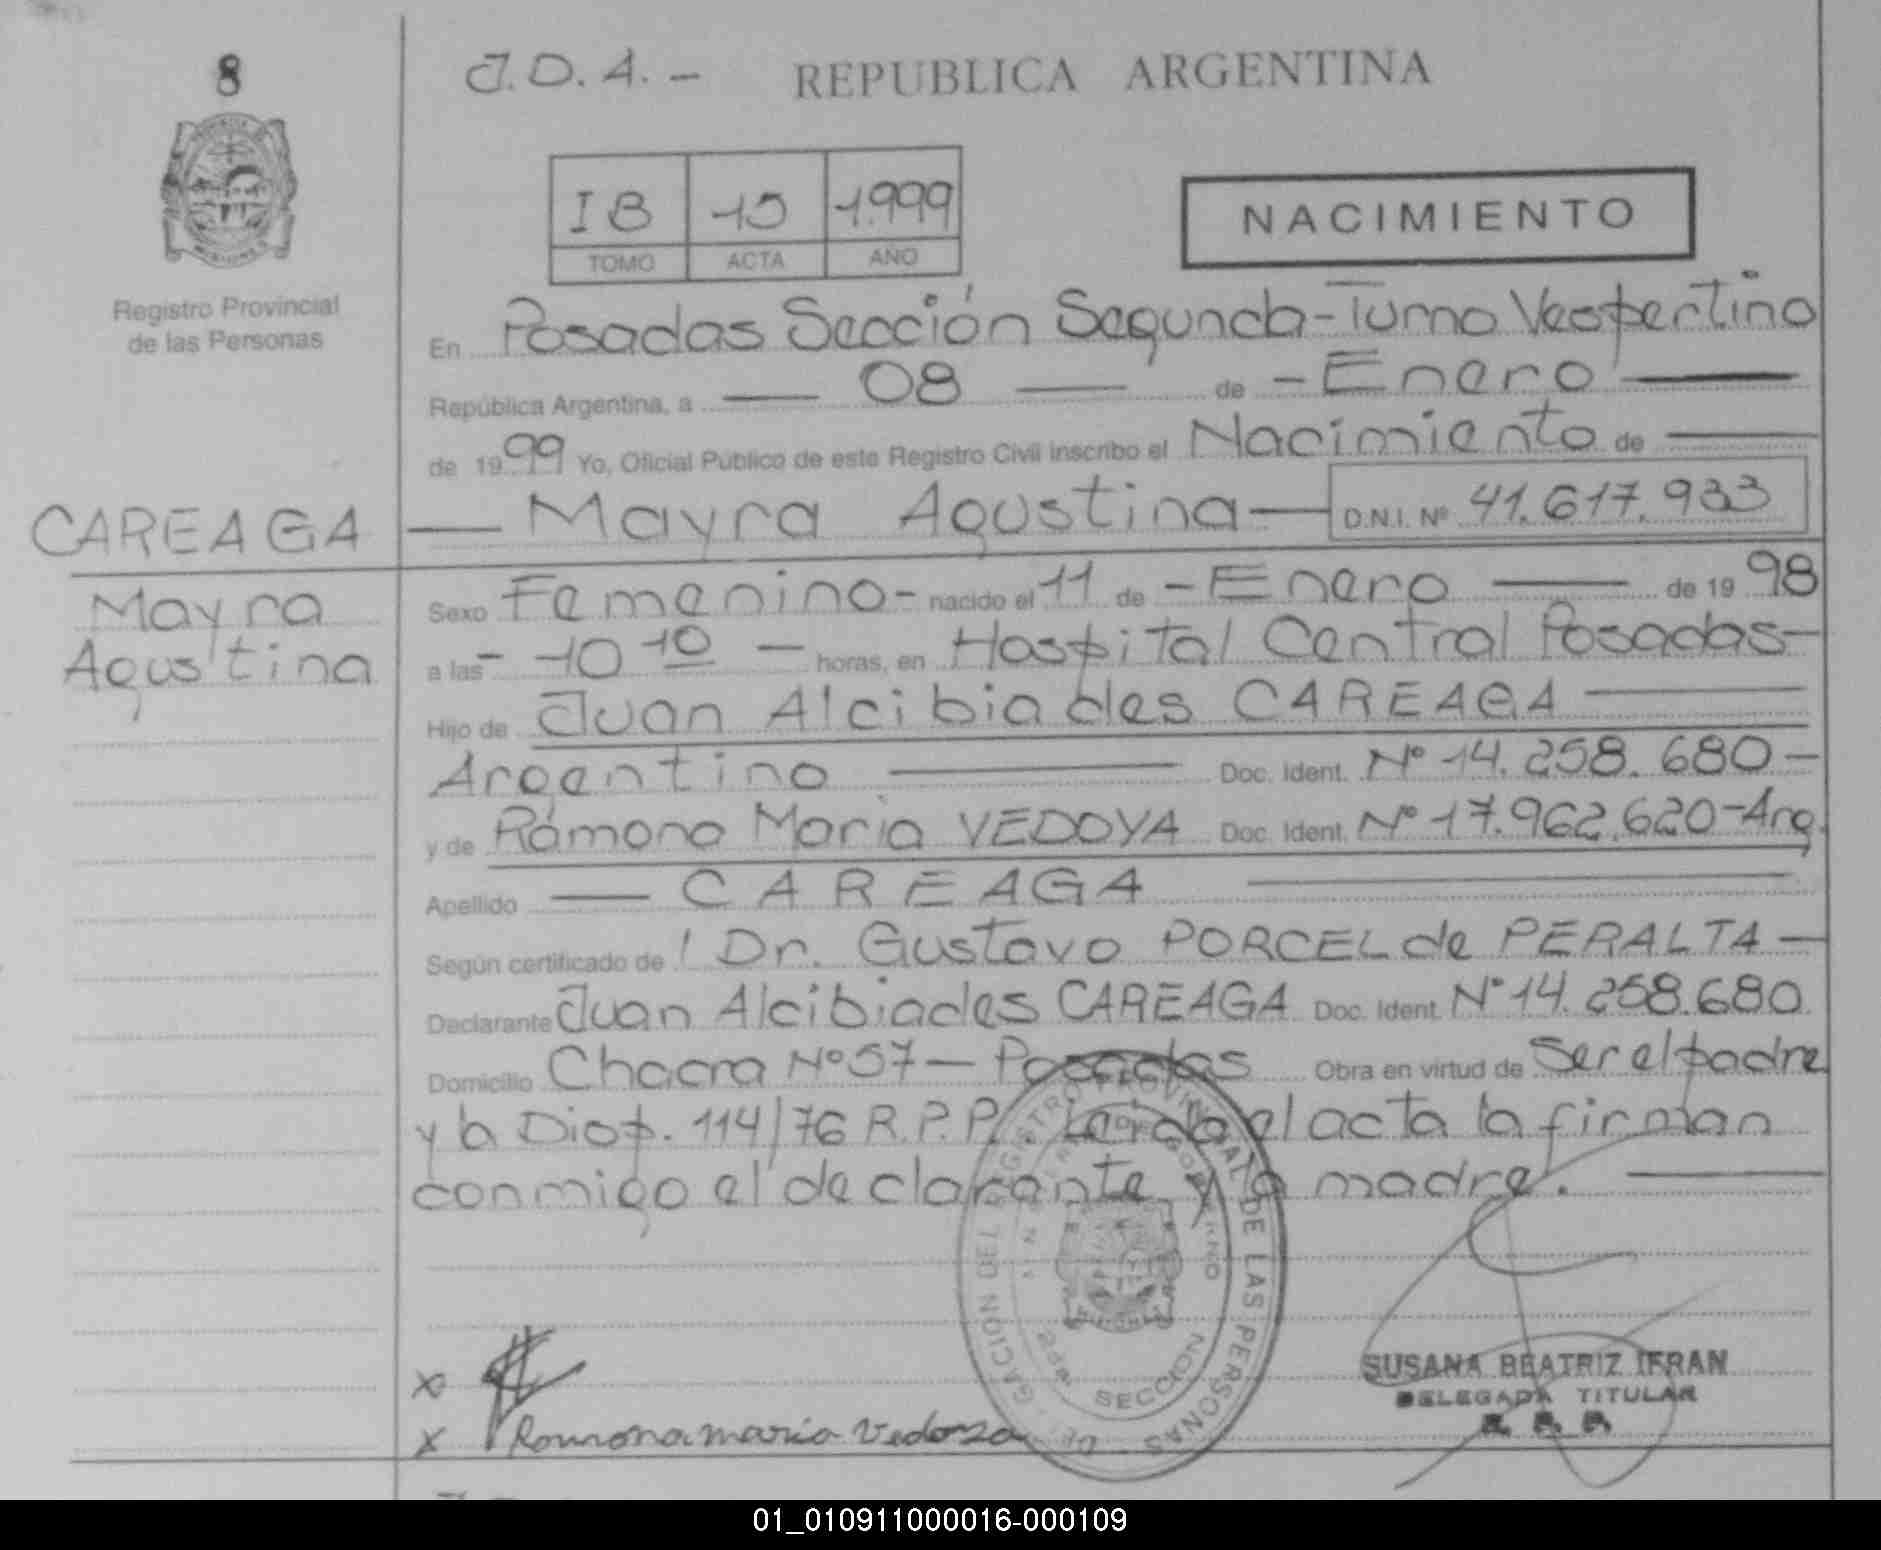 8
J.D.A. -
REPUBLICA ARGENTINA
I B
15
1.999
TOMO
ACTA
AÑO
NACIMIENTO
Registro Provincial
de las Personas
En Posadas Sección Segunda - Turno Vespertino
República Argentina, a — 08 — de - Enero —
de 1999 Yo, Oficial Público de este Registro Civil inscribo el Nacimiento de —
CAREAGA
— Mayra Agustina — D.N.I. Nº 41.617.933
Mayra
Agustina
Sexo Femenino - nacido el 11 de - Enero — de 1998
a las - 10 10 — horas, en Hospital Central Posadas -
Hijo de Juan Alcibiades CAREAGA —
Argentino — Doc. Ident. Nº 14.258.680 -
y de Ramona Maria VEDOYA Doc. Ident. Nº 17.962.620 - Arg.
Apellido — CAREAGA —
Según certificado de Dr. Gustavo PORCEL de PERALTA -
Declarante Juan Alcibiades CAREAGA Doc. Ident. Nº 14.258.680
Domicilio Chacra Nº 57 - Posadas Obra en virtud de Ser el padre
y la Disp. 114/76 R.P.P. Leida el acta la firman
conmigo el declarante y la madre. —
REGISTRO PROVINCIAL DE LAS PERSONAS
SECCION
SUSANA BEATRIZ IFRAN
DELEGADA TITULAR
x
x Ramona maria Vedoya
01_010911000016-000109